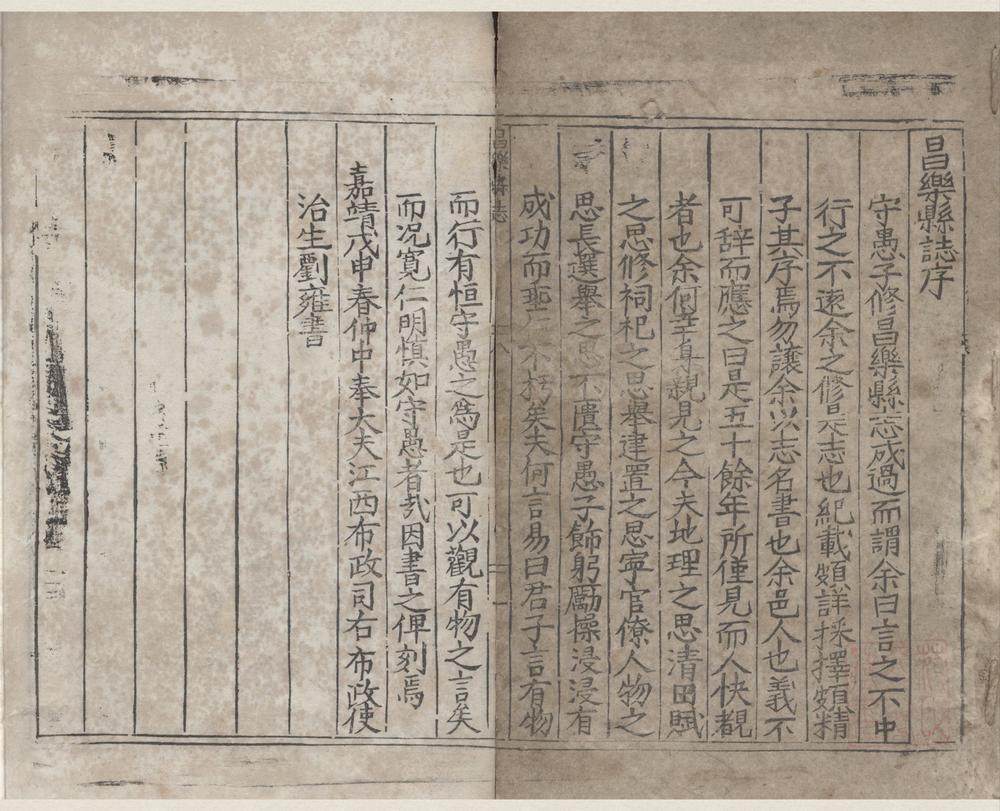 昌樂縣誌序
守愚子修昌樂縣志成過而謂余曰言之不中
行之不遠余之修是志也紀載頗詳採擇頗精
子其序焉勿讓余以志名書也余邑人也義不
可辞而應之曰是五十餘年所僅見而人快覩
者也余何幸身親見之今夫地理之思清田賦
之思修祠祀之思舉建置之思寧官僚人物之
思長選舉之思不匱守愚子飾躬勵操浸浸有
成功而聖 不朽矣夫何言易曰君子言有物
而行有恒守愚之為是也可以觀有物之言矣
而况寬仁明慎如守愚者哉因書之俾刻焉
嘉靖戊申春仲中奉大夫江西布政司右布政使
治生劉雍書
昌樂縣志